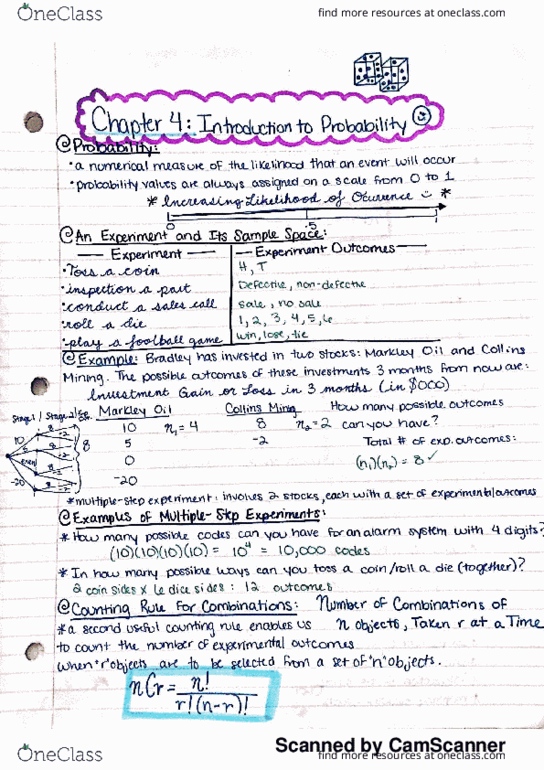 OneClass
find more resources at oneclass.com
Chapter 4: Introduction to Probability
Probability:
• a numerical measure of the likelihood that an event will occur
• probability values are always assigned on a scale from 0 to 1
* Increasing Likelihood of Ocurrence *
0 .5 1
An Experiment and Its Sample Space:
Experiment Experiment Outcomes
• Toss a coin H, T
• inspection a part Defective, non-defective
• conduct a sales call sale, no sale
• roll a die 1, 2, 3, 4, 5, 6
• play a football game win, lose, tie
Example: Bradley has invested in two stocks: Markley Oil and Collins
Mining. The possible outcomes of these investments 3 months from now are:
Investment Gain or Loss in 3 months (in $000)
Stage 1 / Stage 2 / Markley Oil Collins Mining How many possible outcomes
10 n₁ = 4 8 n₂ = 2 can you have?
5 -2 Total # of exp. outcomes:
0 (n₁)(n₂) = 8 ✓
-20
10 8 -2 8 -2 8 -2 8 -2 -20 8
* multiple-step experiment: involves 2 stocks, each with a set of experimental outcomes
Examples of Multiple-Step Experiments:
* How many possible codes can you have for an alarm system with 4 digits?
(10)(10)(10)(10) = 10⁴ = 10,000 codes
* In how many possible ways can you toss a coin/roll a die (together)?
2 coin sides x 6 dice sides: 12 outcomes
Counting Rule For Combinations: Number of Combinations of
* a second useful counting rule enables us n objects, Taken r at a Time
to count the number of experimental outcomes
when 'r' objects are to be selected from a set of 'n' objects.
nCr = n!
r!(n-r)!
Scanned by CamScanner
OneClass
find more resources at oneclass.com